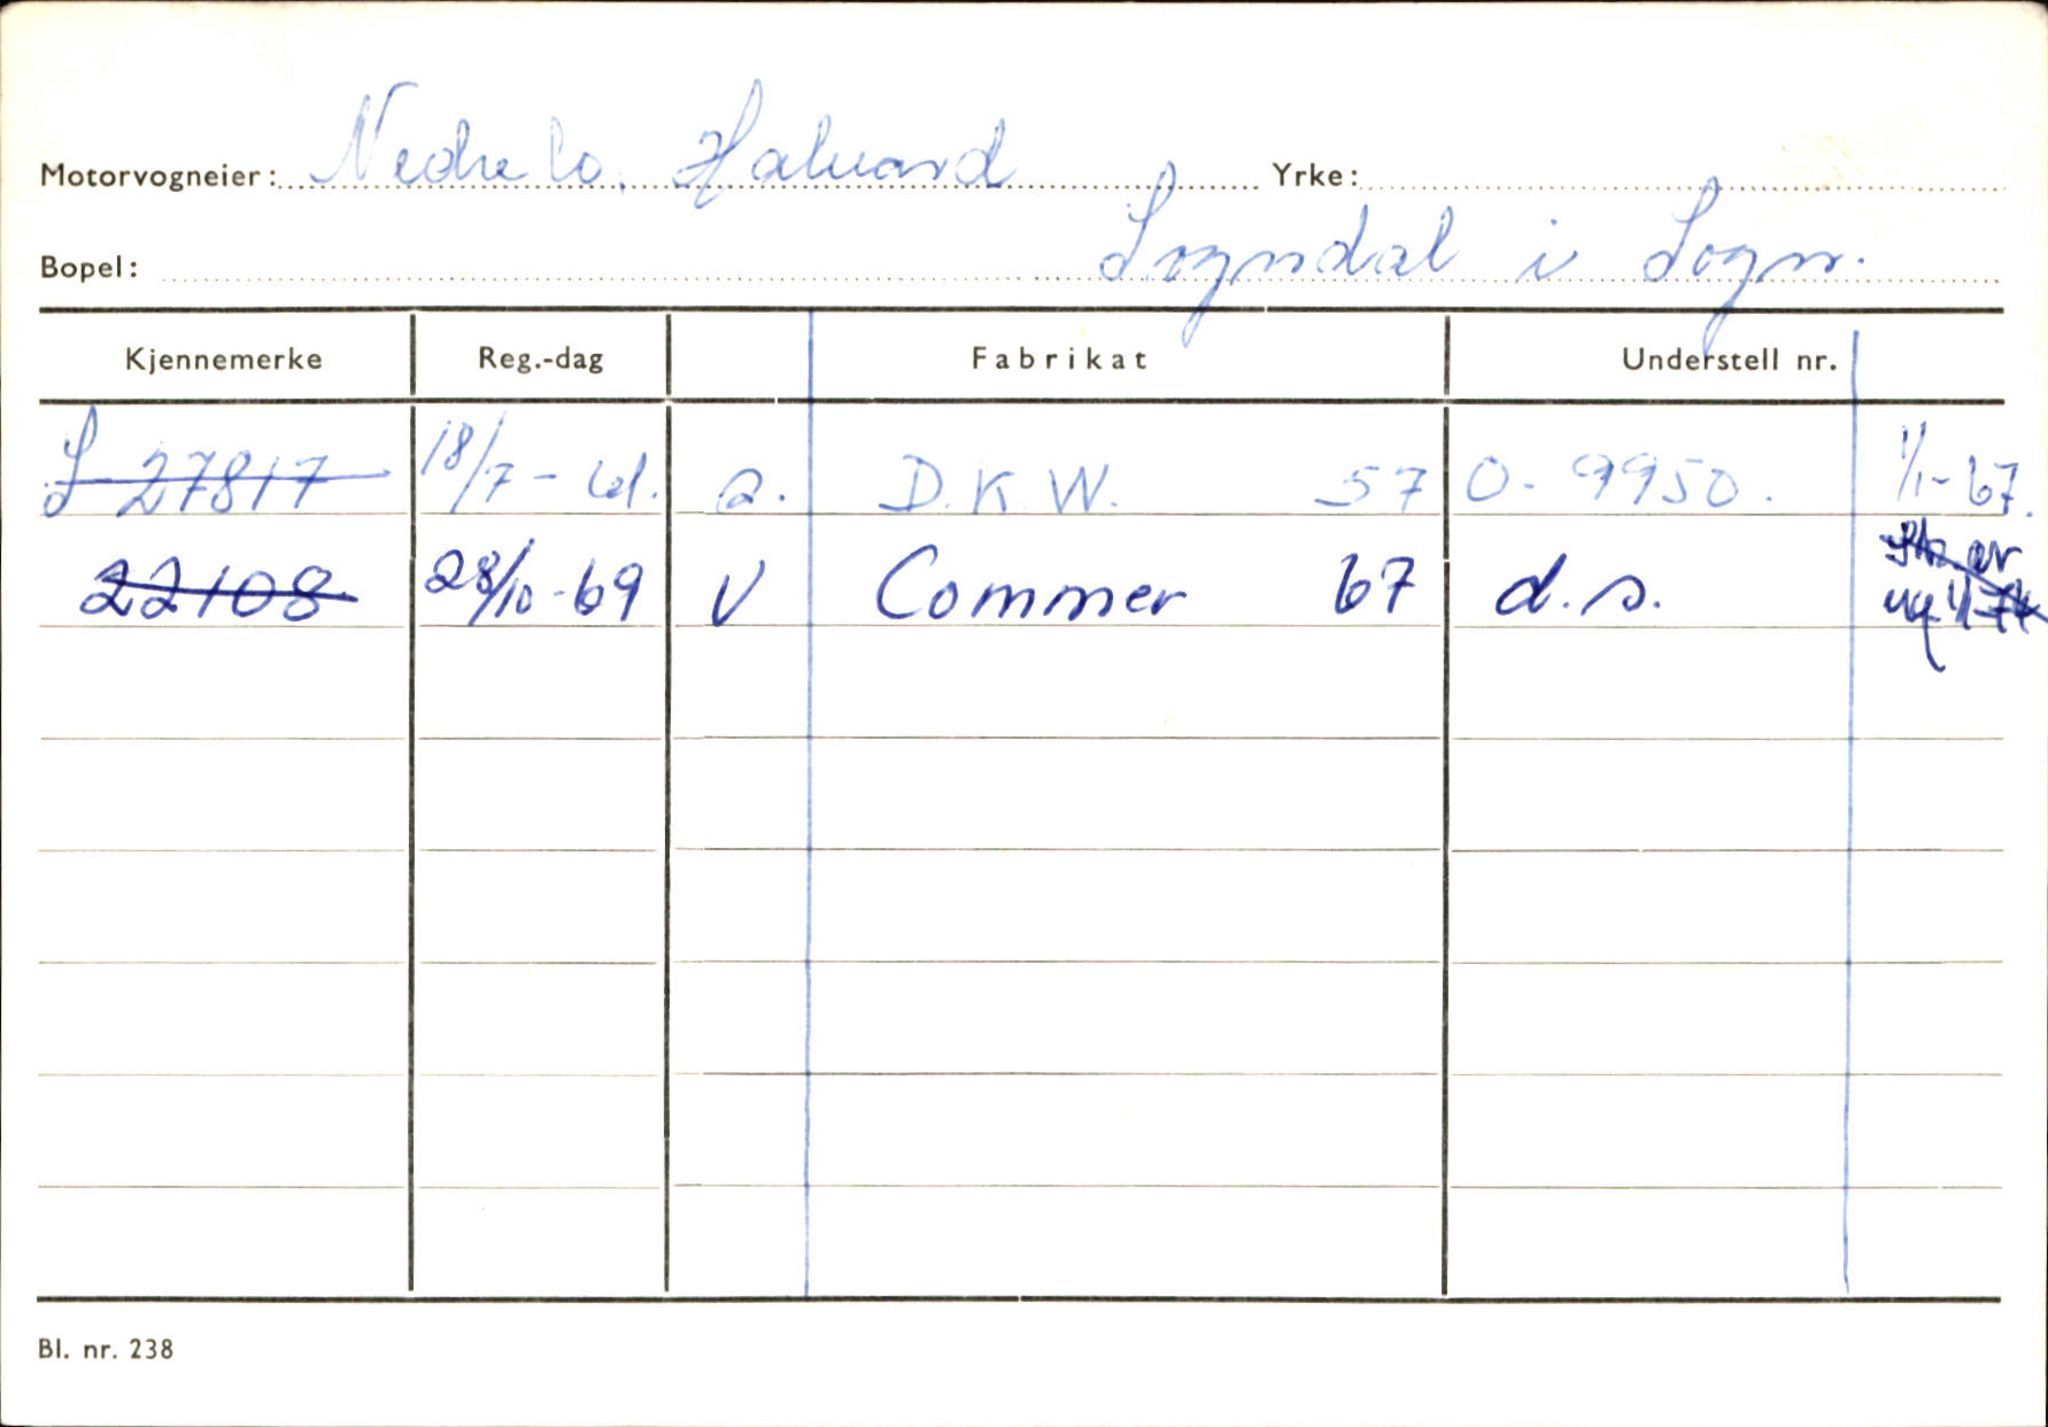 Motorvogneier: Nedrelo, Halvard Yrke:
Bopel: Sogndal i Sogn.
Kjennemerke Reg.-dag Fabrikat Understell nr.
S 27817 18/7-61. a. D.K.W. 57 0-9950. 1/1-67.
22108 28/10-69 V Commer 67 d.s.
Bl. nr. 238